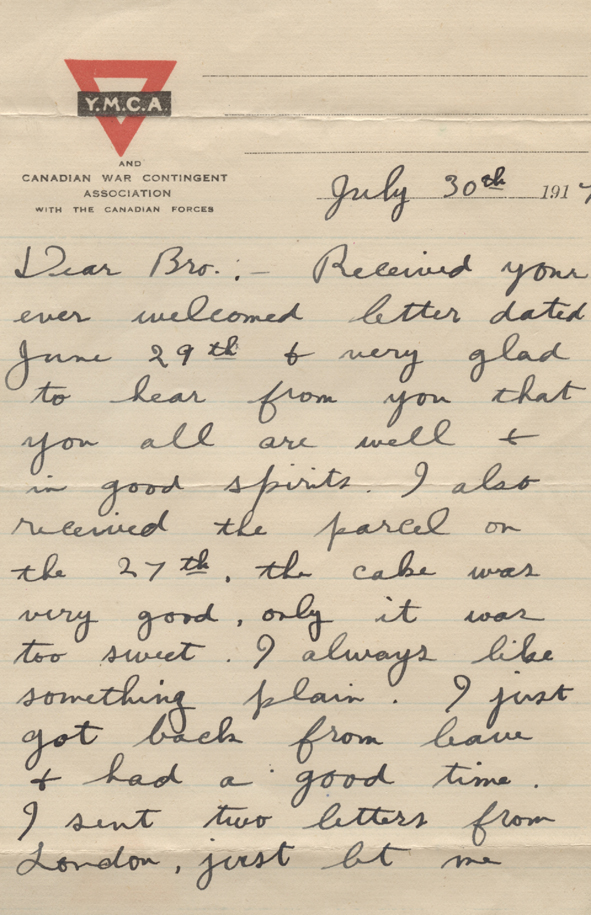 Y.M.C.A.
AND
CANADIAN WAR CONTINGENT
ASSOCIATION
WITH THE CANADIAN FORCES
July 30th 1917
Dear Bro.:- Received your
ever welcomed letter dated
June 29th & very glad
to hear from you that
you all are well &
in good spirits. I also
received the parcel on
the 27th, the cake was
very good, only it was
too sweet. I always like
something plain. I just
got back from leave
& had a good time.
I sent two letters from
London, just let me